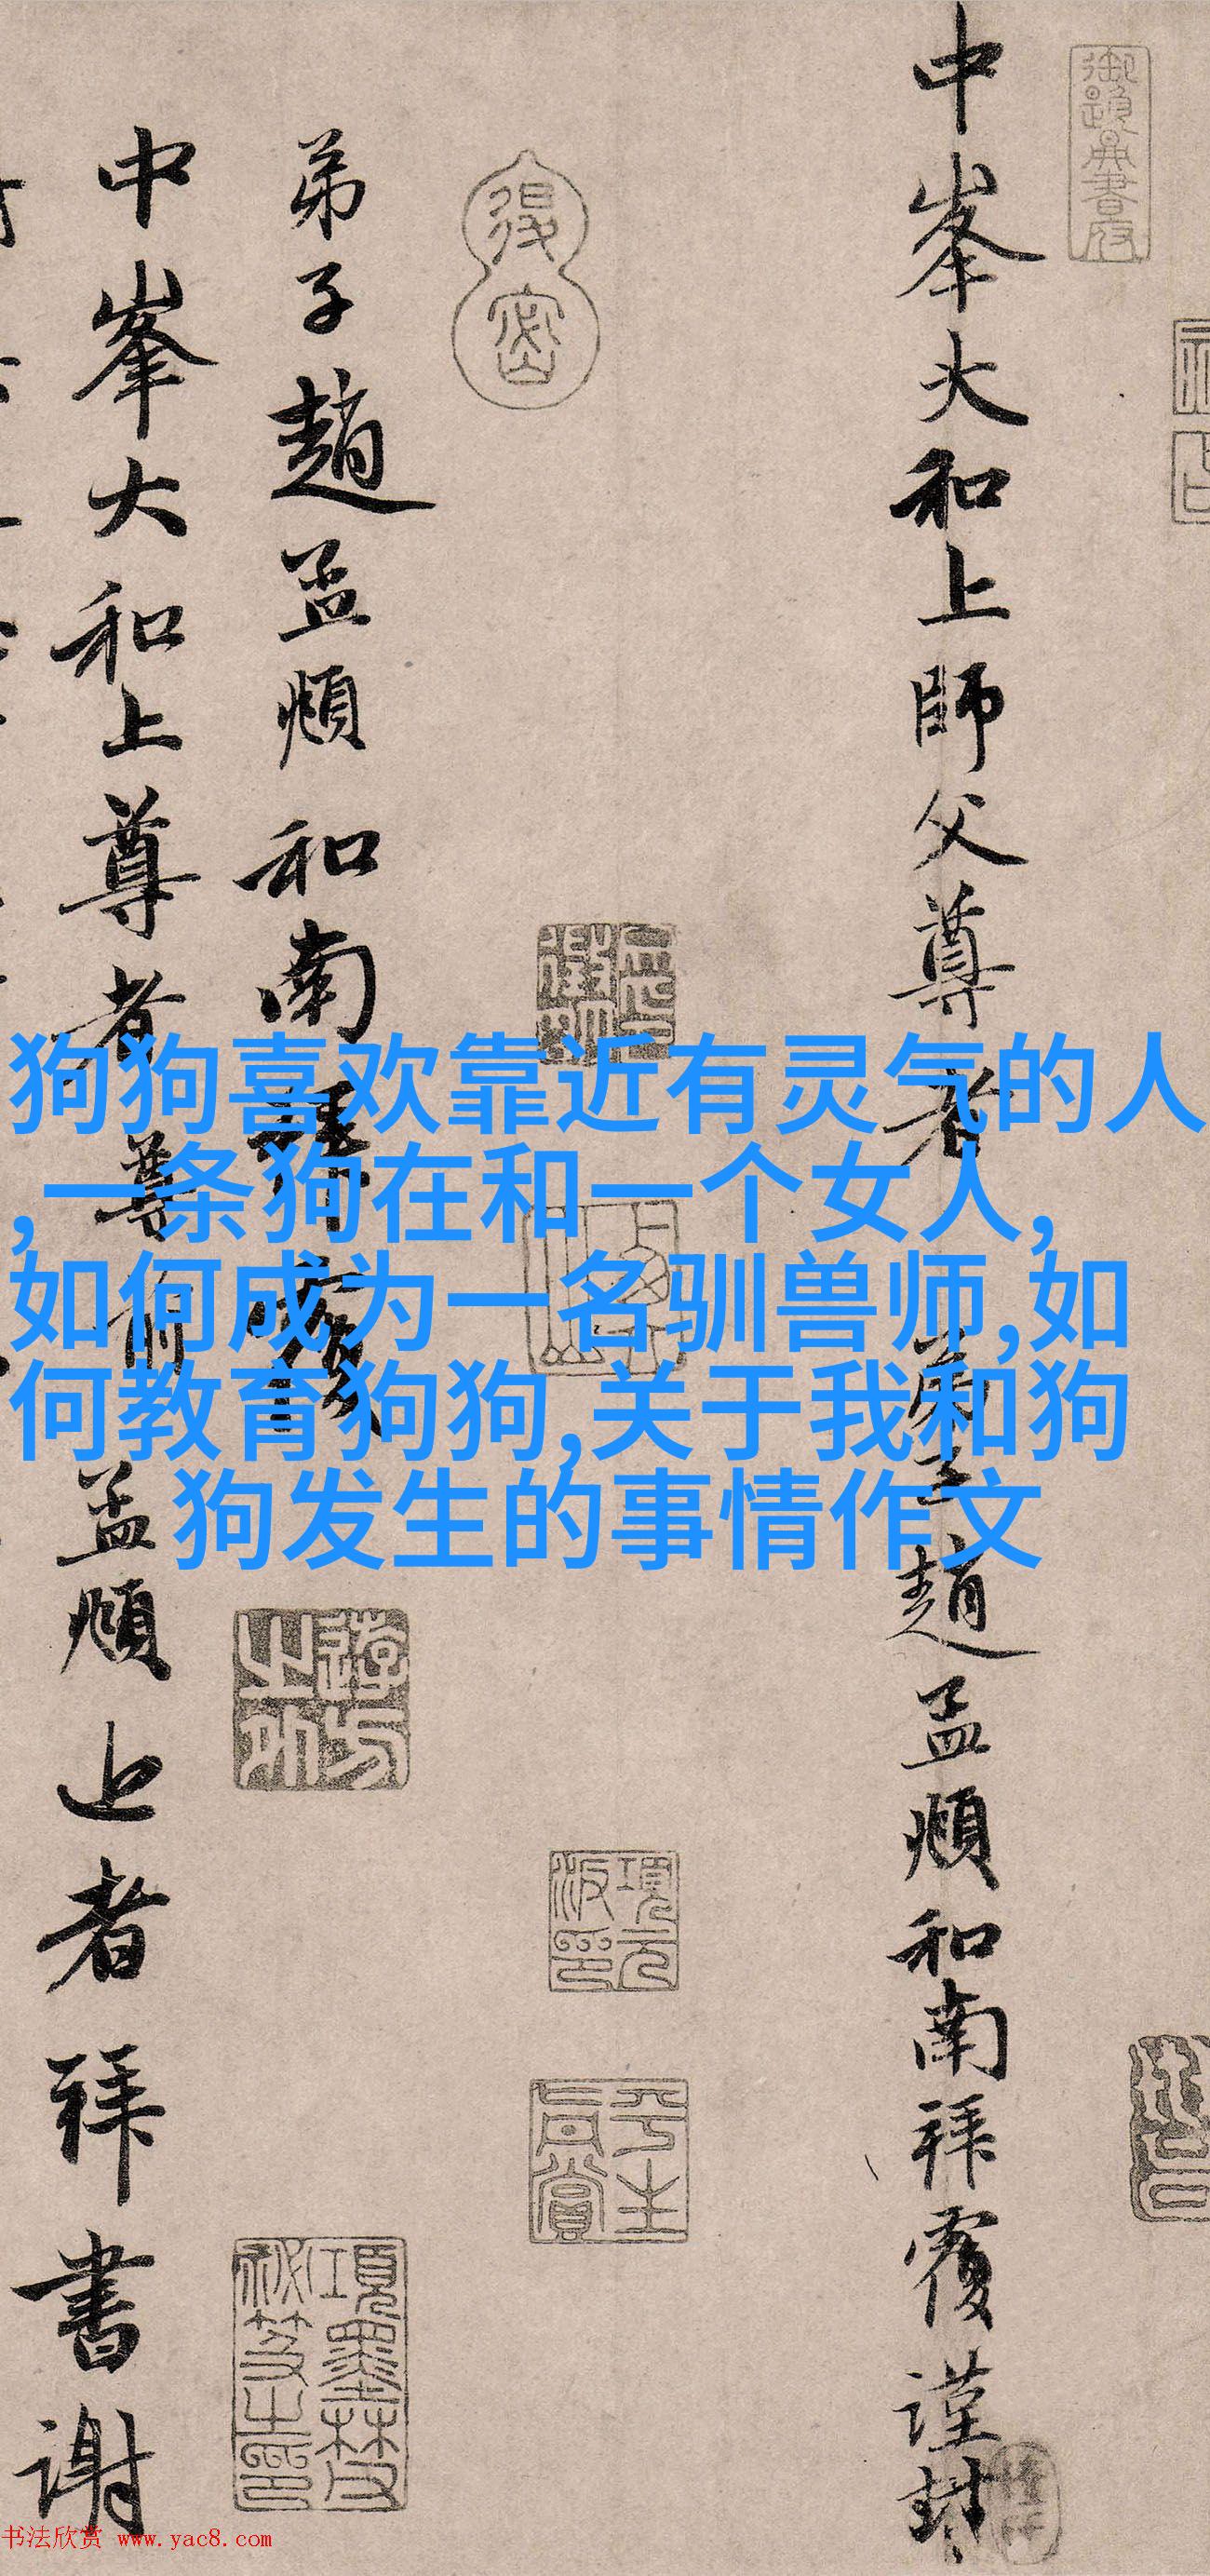 中峯大和上師父尊者
弟子趙孟頫和南拜覆謹封
弟子趙孟頫和南拜覆
中峯大和上尊者尊前
孟頫上者拜書謝
狗狗喜欢靠近有灵气的人
,一条狗在和一个女人,
如何成为一名驯兽师,如
何教育狗狗,关于我和狗
狗发生的事情作文
御題
書府
項元
汴印
平生
真賞
項墨林
秘笈之印
书法欣赏 www.yac8.com